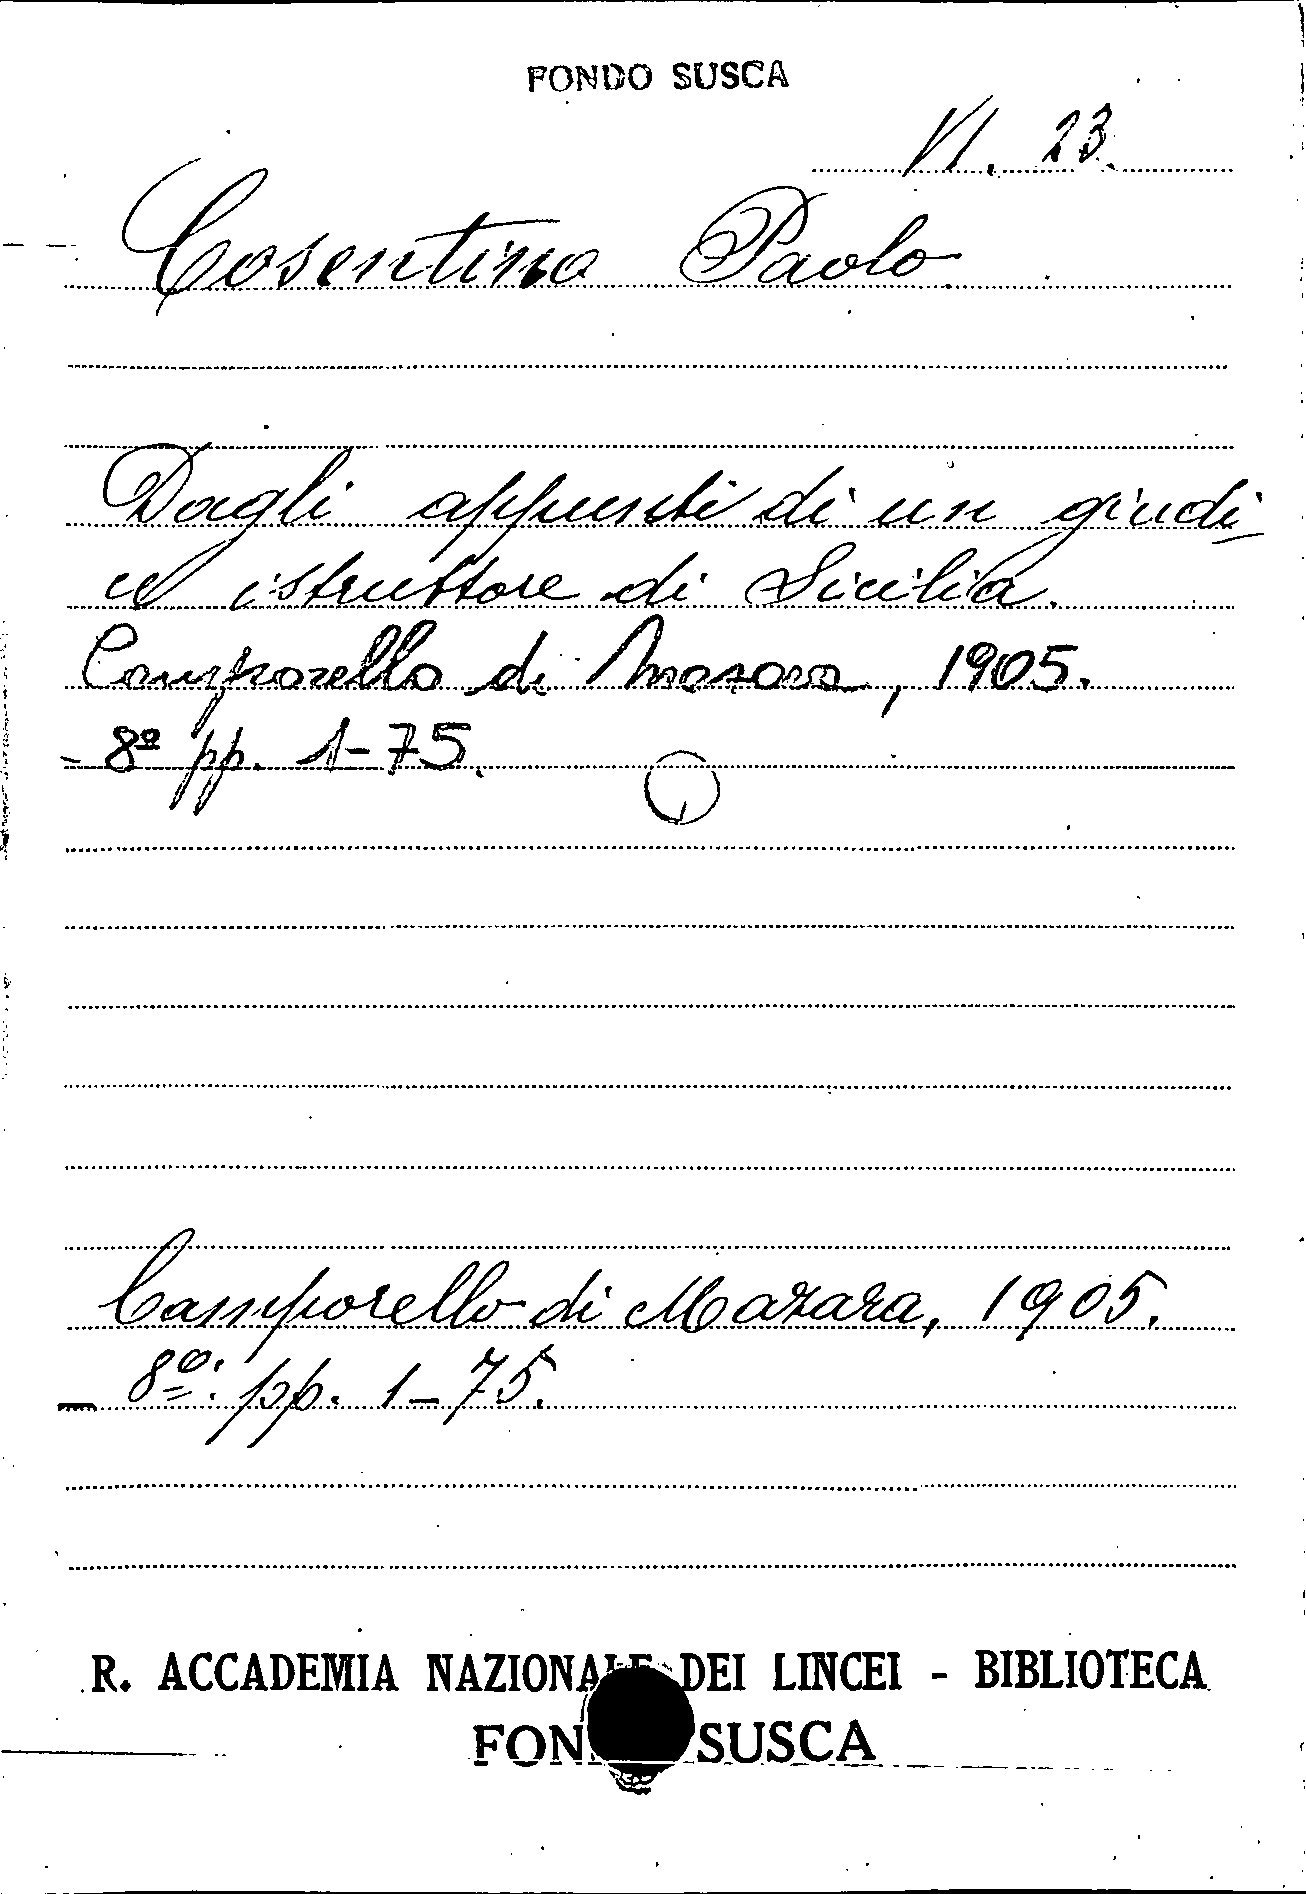 FONDO SUSCA
VI. 23.
Cosentino Paolo
Dagli appunti di un giudi-
ce istruttore di Sicilia.
Camporello di Mazara, 1905.
- 8º pp. 1-75.
Camporello di Mazara, 1905.
- 8º: pp. 1-75.
R. ACCADEMIA NAZIONALE DEI LINCEI - BIBLIOTECA
FONDO SUSCA